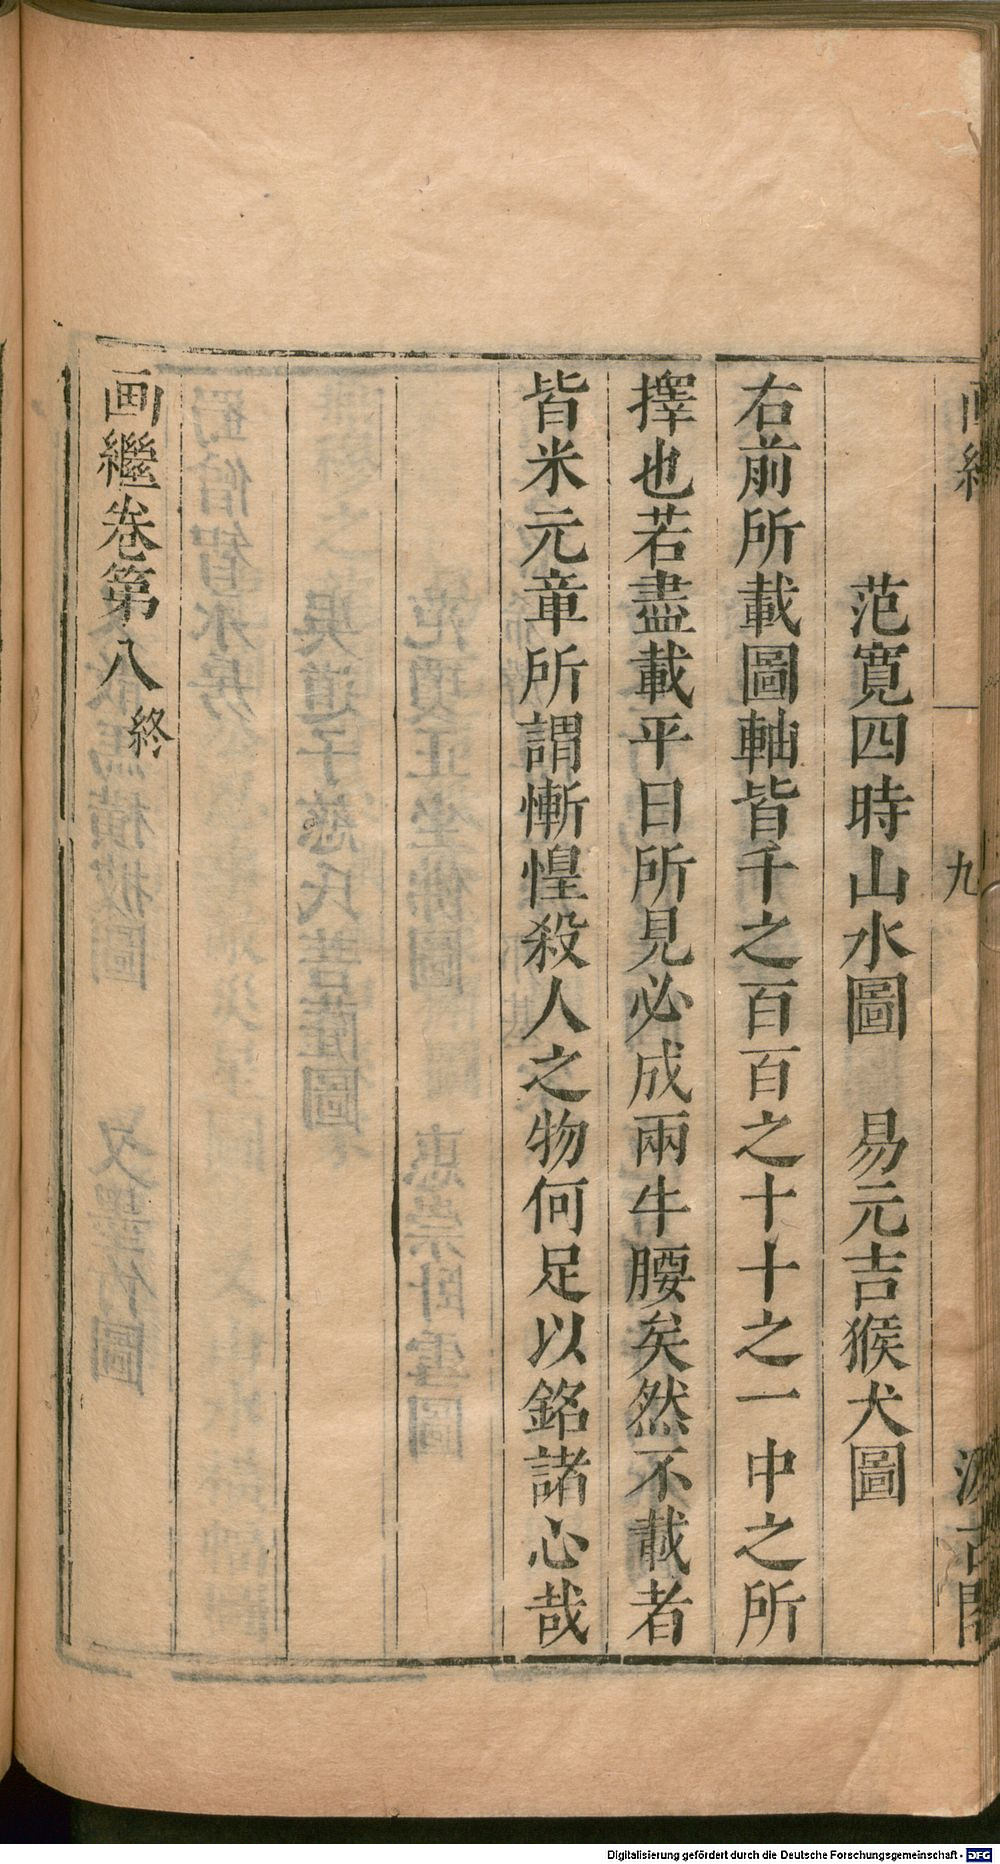 画繼
九
汲古閣
范寛四時山水圖　易元吉猴犬圖
右前所載圖軸皆千之百百之十十之一中之所
擇也若盡載平日所見必成兩牛腰矣然不載者
皆米元章所謂慚惶殺人之物何足以銘諸心哉
画繼卷第八終
Digitalisierung gefördert durch die Deutsche Forschungsgemeinschaft - DFG